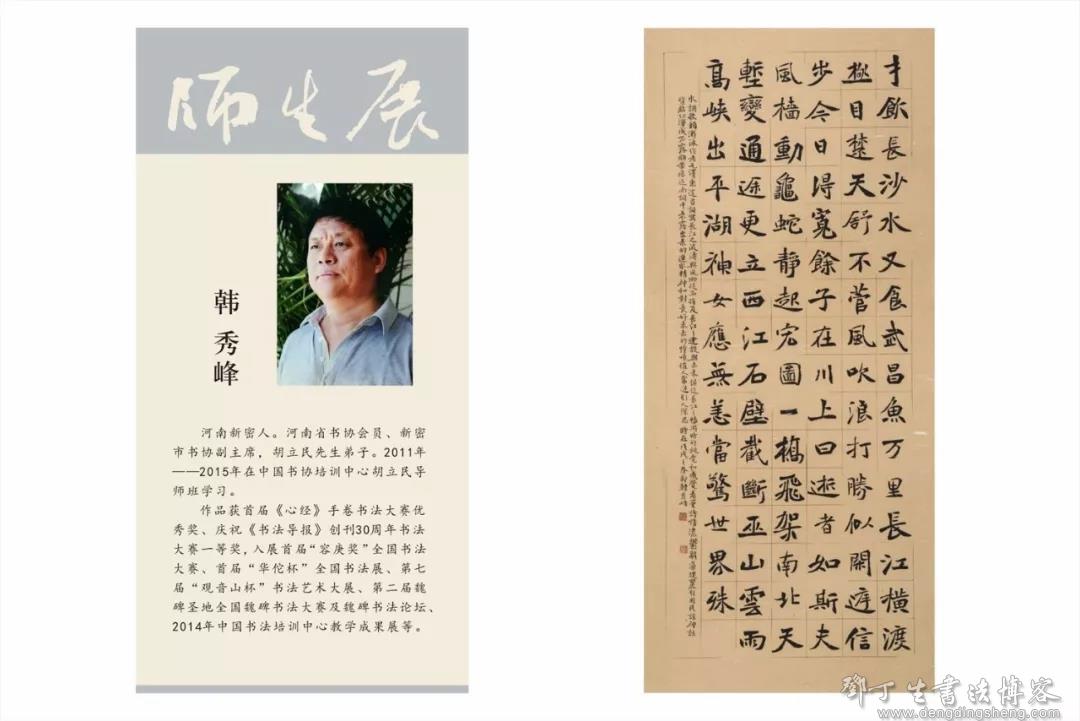 师生展
韩秀峰
河南新密人。河南省书协会员、新密
市书协副主席，胡立民先生弟子。2011年
——2015年在中国书协培训中心胡立民导
师班学习。
作品获首届《心经》手卷书法大赛优
秀奖、庆祝《书法导报》创刊30周年书法
大赛一等奖，入展首届“容庚奖”全国书法
大赛、首届“华佗杯”全国书法展、第七
届“观音山杯”书法艺术大展、第二届魏
碑圣地全国魏碑书法大赛及魏碑书法论坛、
2014年中国书法培训中心教学成果展等。
才飲長沙水又食武昌魚万里長江橫渡
極目楚天舒不菅風吹浪打勝似閑庭信
步今日得寬餘子在川上曰逝者如斯夫
風檣動龜蛇靜起宏圖一橋飛架南北天
塹變通途更立西江石壁截斷巫山雲雨
高峽出平湖神女應無恙當驚世界殊
水調歌頭游泳作者毛澤東這首詞
鄧丁生書法博客
www.dengdingsheng.com